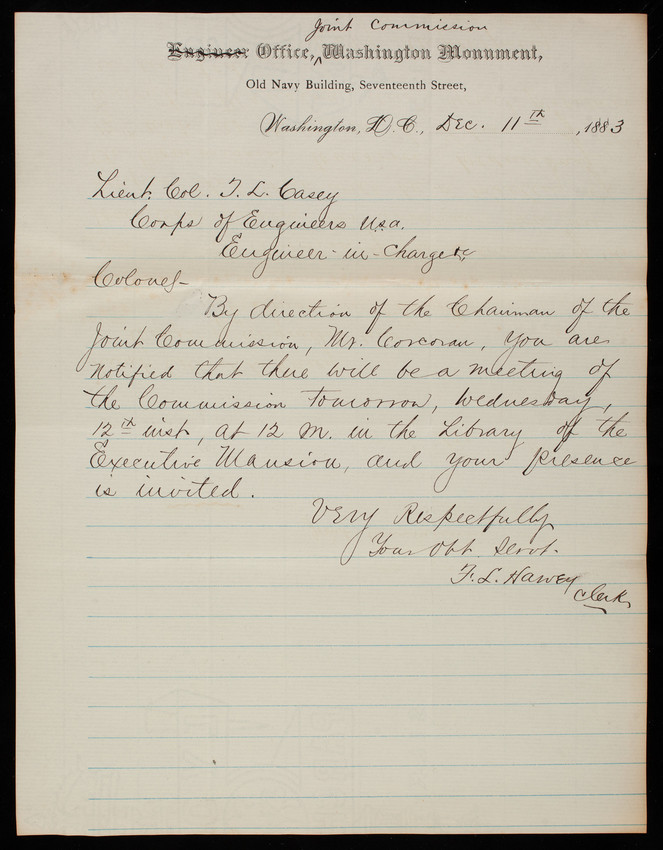 Joint Commission
Engineer Office, Washington Monument,
Old Navy Building, Seventeenth Street,
Washington, D.C., Dec. 11th, 1883
Lieut. Col. T. L. Casey
Corps of Engineers U.S.A.
Engineer-in-Charge &c
Colonel-
By direction of the Chairman of the
Joint Commission, Mr. Corcoran, you are
notified that there will be a meeting of
the Commission tomorrow, Wednesday,
12th inst, at 12 M. in the Library of the
Executive Mansion, and your presence
is invited.
Very Respectfully
Your Obt. Servt.
F. L. Harvey
Clerk